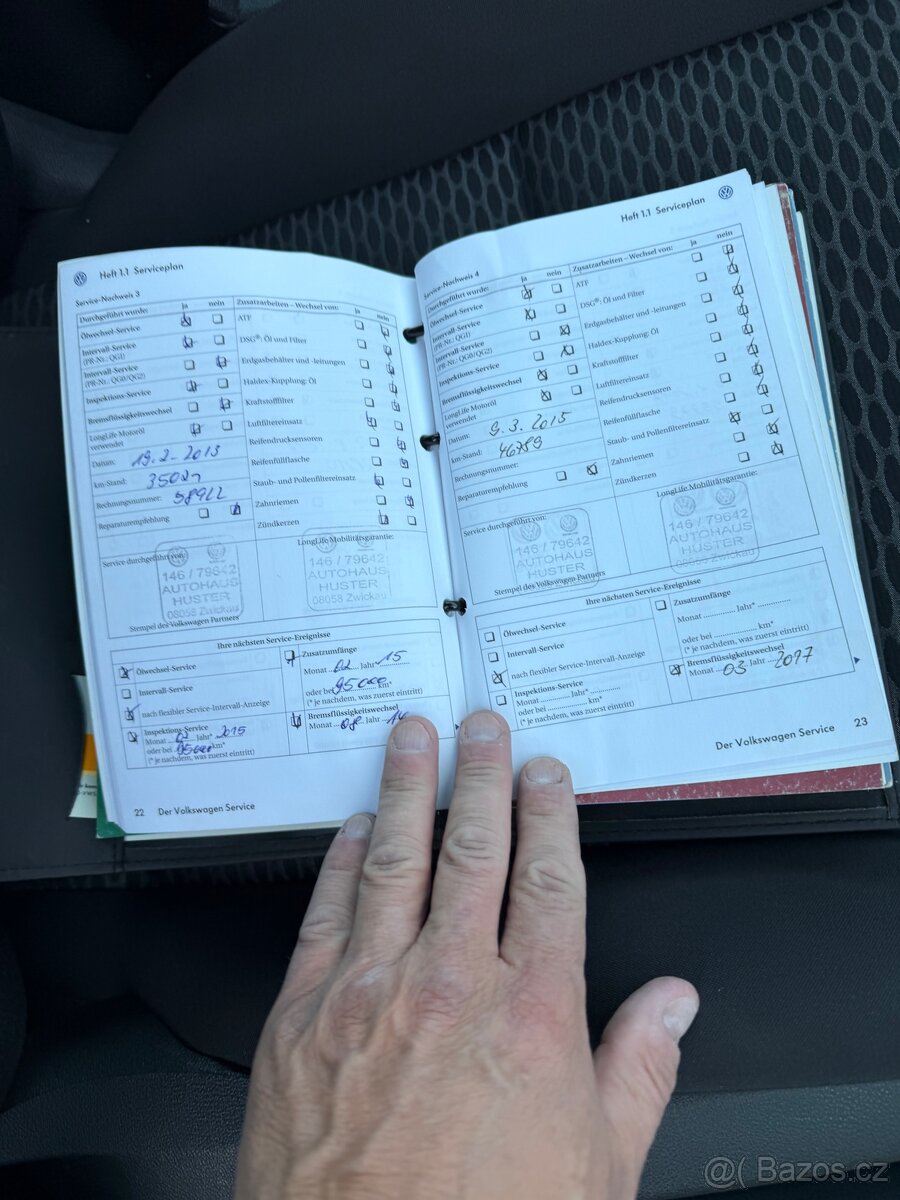 Heft 1.1 Serviceplan
Service-Nachweis 3
Durchgeführt wurde: ja nein
Ölwechsel-Service
Intervall-Service
(PR-Nr.: QG1)
Intervall-Service
(PR-Nr.: QG0/QG2)
Inspektions-Service
Bremsflüssigkeitswechsel
LongLife Motoröl
verwendet
Datum: 19.2.2013
km-Stand:
Rechnungsnummer:
Reparaturempfehlung
Zusatzarbeiten – Wechsel von: ja nein
ATF
DSG®: Öl und Filter
Erdgasbehälter und -leitungen
Haldex-Kupplung: Öl
Kraftstofffilter
Luftfiltereinsatz
Reifendrucksensoren
Reifenfüllflasche
Staub- und Pollenfiltereinsatz
Zahnriemen
Zündkerzen
Service durchgeführt von:
146 / 79642
AUTOHAUS
HUSTER
08058 Zwickau
Stempel des Volkswagen Partners
LongLife Mobilitätsgarantie:
146 / 79642
AUTOHAUS
HUSTER
08058 Zwickau
Ihre nächsten Service-Ereignisse
Ölwechsel-Service
Intervall-Service
nach flexibler Service-Intervall-Anzeige
Inspektions-Service
Monat 02 Jahr* 2015
oder bei 95000 km*
(* je nachdem, was zuerst eintritt)
Zusatzumfänge
Monat 02 Jahr* 15
oder bei 95000 km*
(* je nachdem, was zuerst eintritt)
Bremsflüssigkeitswechsel
Monat 08 Jahr 14
22 Der Volkswagen Service
Heft 1.1 Serviceplan
Service-Nachweis 4
Durchgeführt wurde: ja nein
Ölwechsel-Service
Intervall-Service
(PR-Nr.: QG1)
Intervall-Service
(PR-Nr.: QG0/QG2)
Inspektions-Service
Bremsflüssigkeitswechsel
LongLife Motoröl
verwendet
Datum: 9.3.2015
km-Stand: 46789
Rechnungsnummer:
Reparaturempfehlung
Zusatzarbeiten – Wechsel von: ja nein
ATF
DSG®: Öl und Filter
Erdgasbehälter und -leitungen
Haldex-Kupplung: Öl
Kraftstofffilter
Luftfiltereinsatz
Reifendrucksensoren
Reifenfüllflasche
Staub- und Pollenfiltereinsatz
Zahnriemen
Zündkerzen
Service durchgeführt von:
146 / 79642
AUTOHAUS
HUSTER
08058 Zwickau
Stempel des Volkswagen Partners
LongLife Mobilitätsgarantie:
146 / 79642
AUTOHAUS
HUSTER
08058 Zwickau
Ihre nächsten Service-Ereignisse
Ölwechsel-Service
Intervall-Service
nach flexibler Service-Intervall-Anzeige
Inspektions-Service
Monat Jahr*
oder bei km*
(* je nachdem, was zuerst eintritt)
Zusatzumfänge
Monat Jahr*
oder bei km*
(* je nachdem, was zuerst eintritt)
Bremsflüssigkeitswechsel
Monat 03 Jahr 2017
Der Volkswagen Service 23
@( Bazos.cz